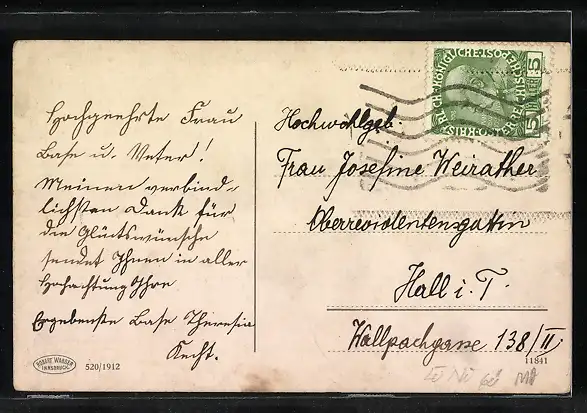 Hochgeehrte Frau
Base u. Vetter!
Meinen verbind-
lichsten Dank für
die Glückswünsche
sendet Ihnen in aller
Hochachtung Ihre
Ergebenste Base Theresia
Knecht.
ROBERT WARGER
INNSBRUCK
520/1912
KAIS. KÖNIGL. OESTERREICHISCHE POST
5 HELLER 5
Hochwohlgeb.
Frau Josefine Weirather
Oberrevidentensgattin
Hall i. T.
Wallpachgasse 138/II
11841